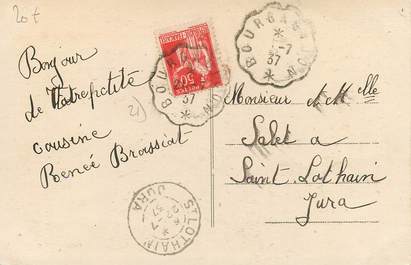 20 F
Bonjour
de Votre petite
cousine
Renée Brassiat
21
50c
POSTES
37
BOURG A
*
-7
37
*
Monsieur et Melle
Salet a
Saint Lothain
Jura
ST LOTHAIN
*
-7
37
JURA